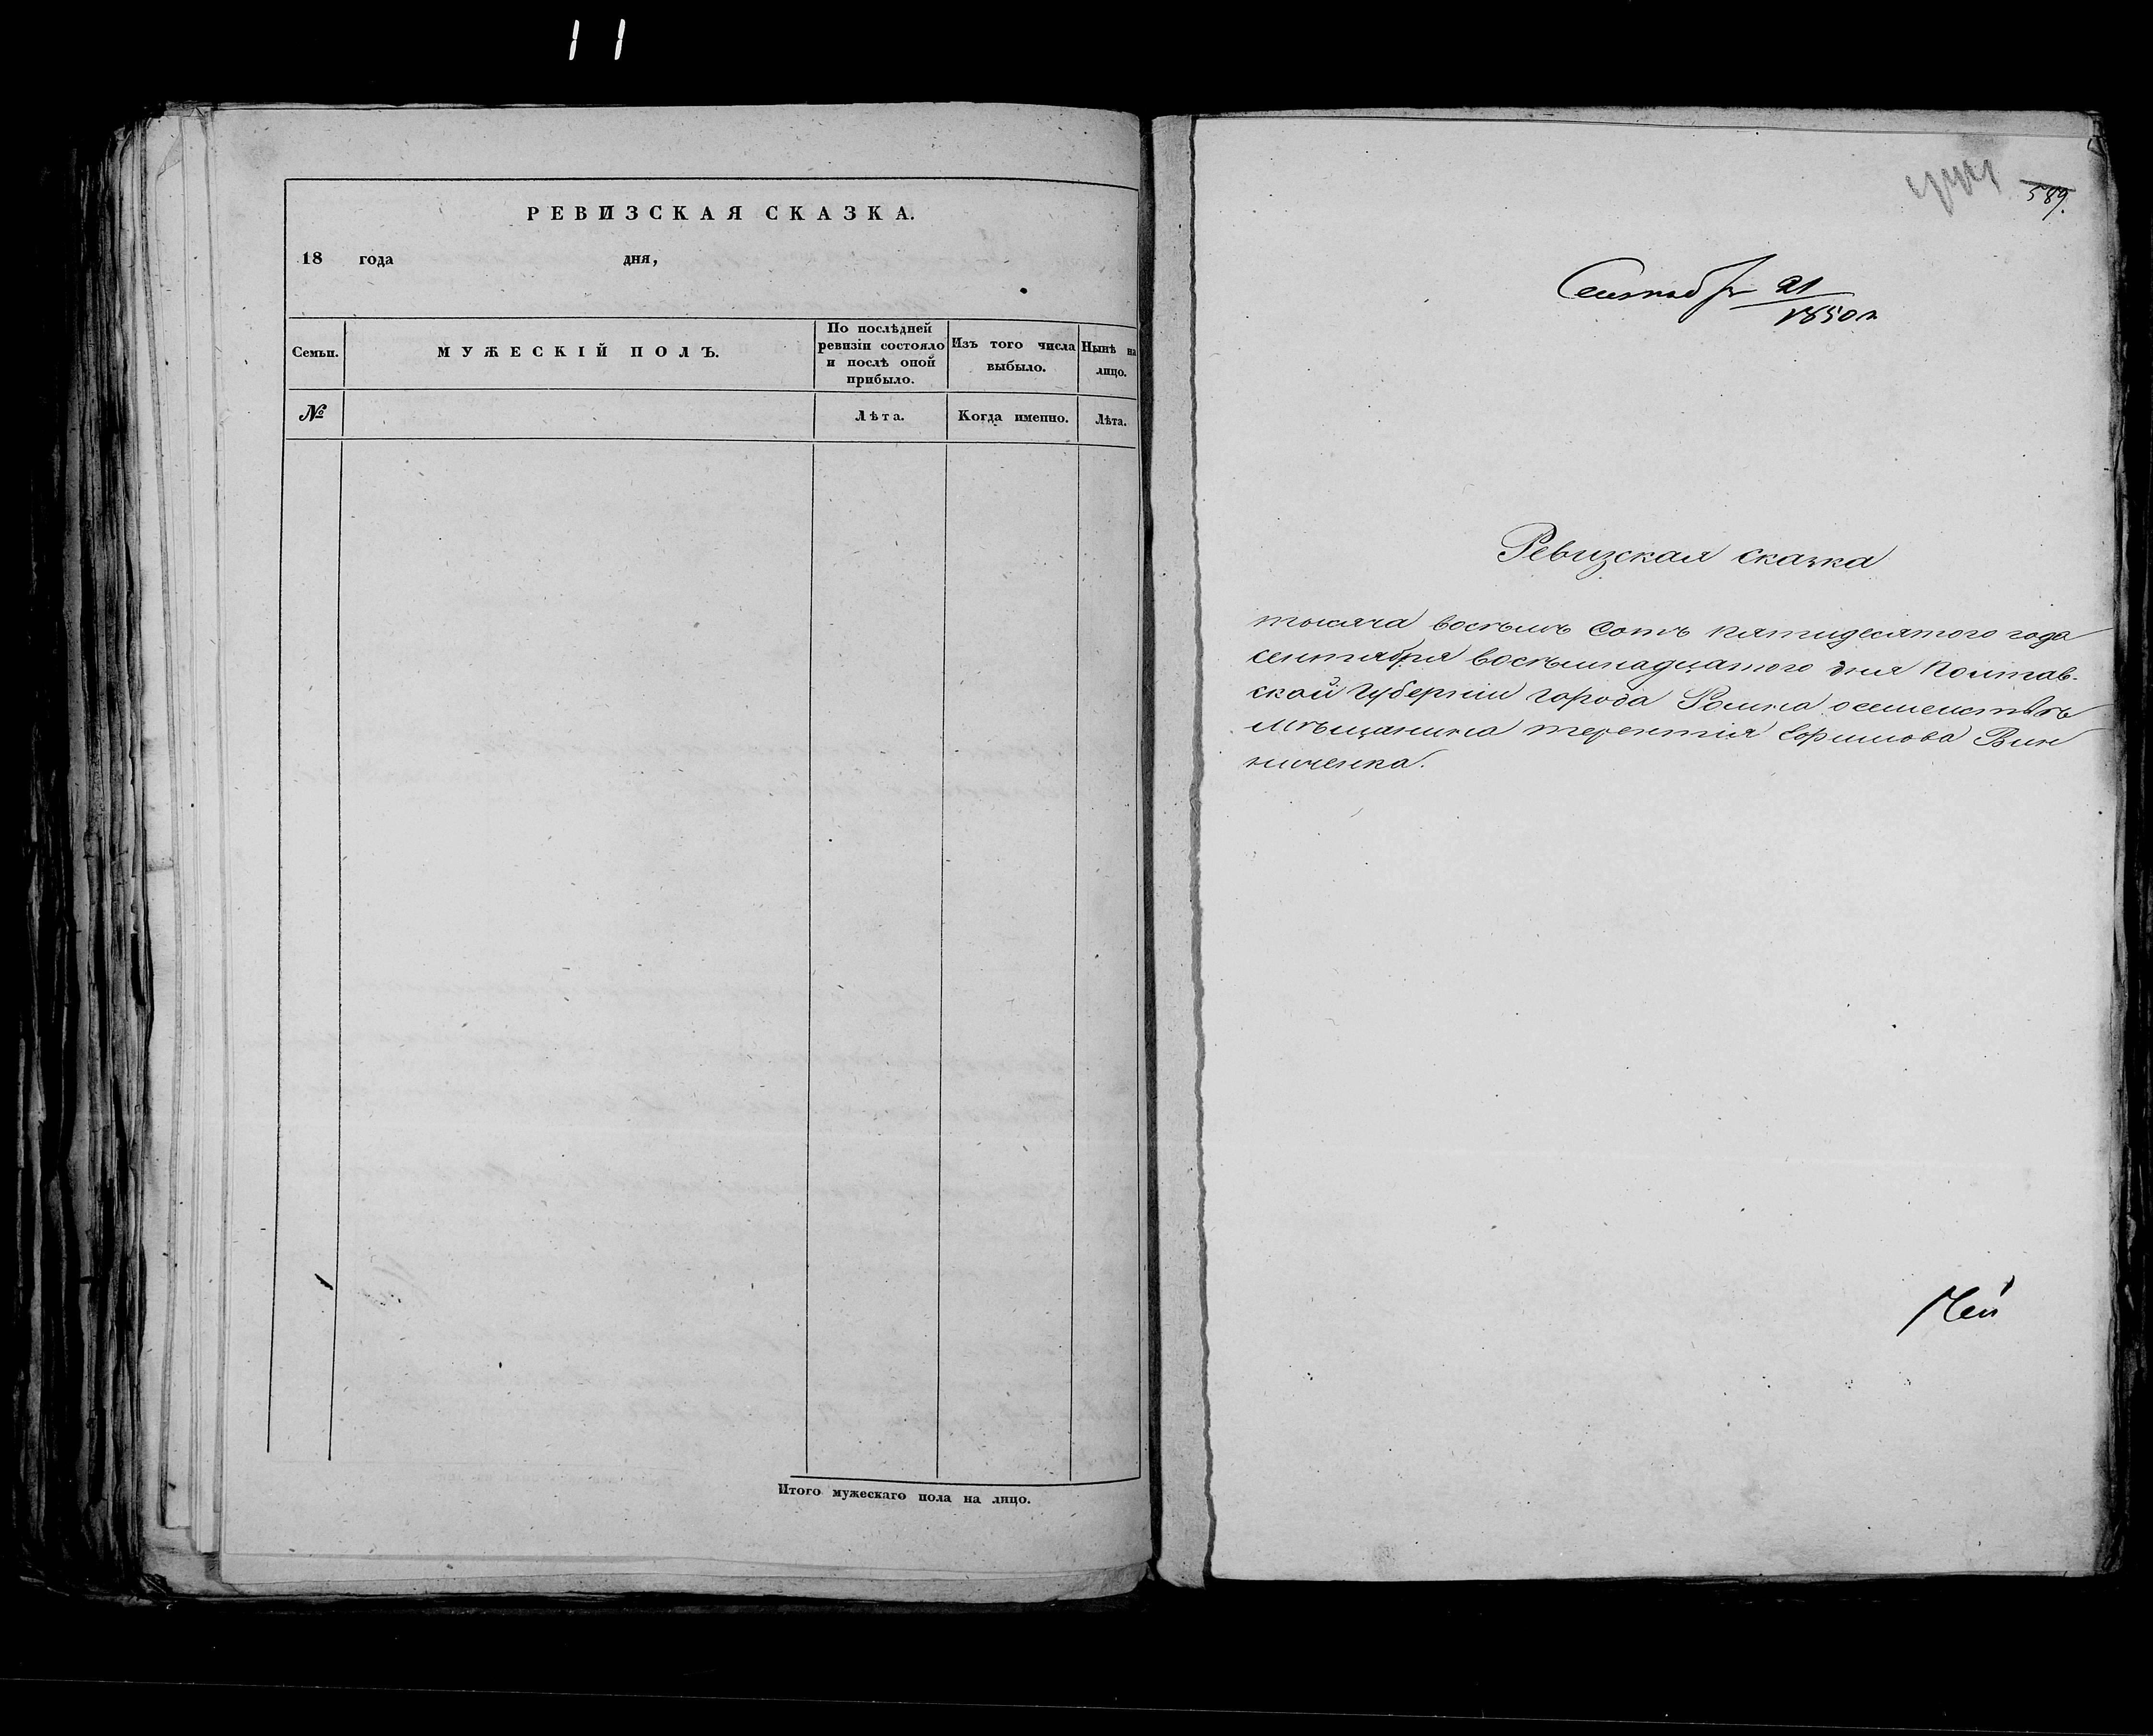 11
РЕВИЗСКАЯ СКАЗКА.
18 года дня,
Семьи.
МУЖЕСКІЙ ПОЛЪ.
По послѣдней
ревизіи состояло
и послѣ оной
прибыло.
Изъ того числа
выбыло.
Нынѣ на
лицо.
№
Лѣта.
Когда именно.
Лѣта.
Итого мужескаго пола на лицо.
589.
Сентября 21
1850 г
Ревизская сказка
тысяча восемь Сотъ пятидесятого года
сентября восемьнадцатого дня Полтав-
ской Губерніи города Ромна осемействѣ
Мѣщанина терентія Ефимова Вин
ниченка.